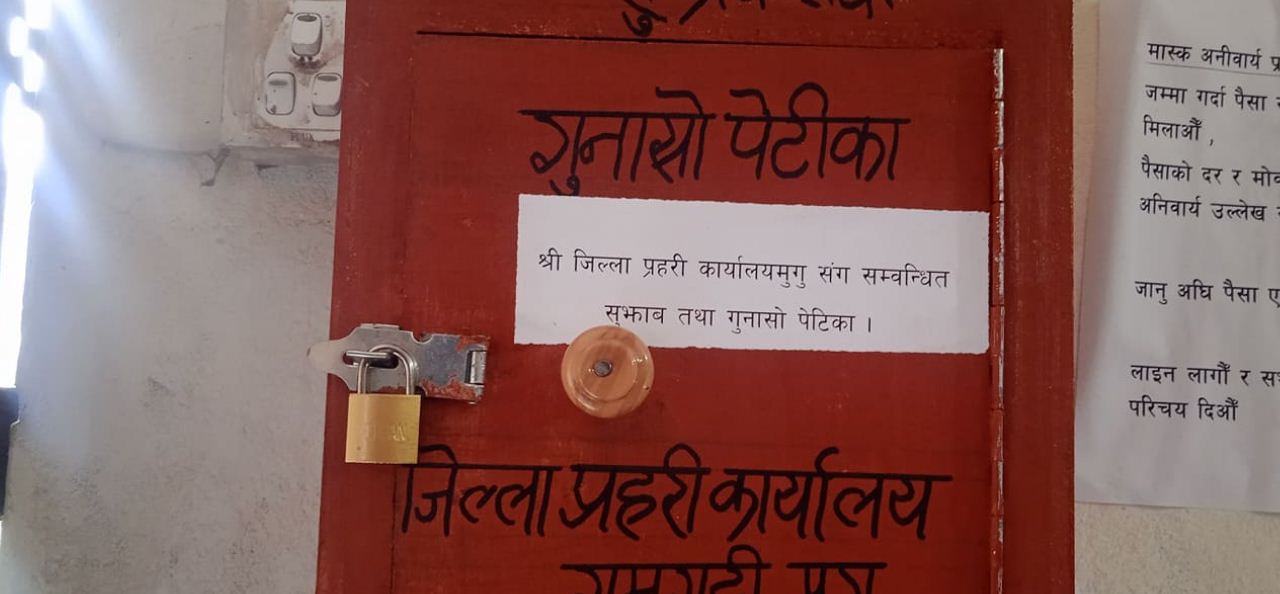 गुनासो पेटीका
श्री जिल्ला प्रहरी कार्यालयमुगु संग सम्वन्धित
सुझाब तथा गुनासो पेटिका ।
जिल्ला प्रहरी कार्यालय
मास्क अनीवार्य
जम्मा गर्दा पैसा
मिलाऔँ ,
पैसाको दर र
अनिवार्य उल्लेख
जानु अघि पैसा
लाइन लागौँ र
परिचय दिऔँ